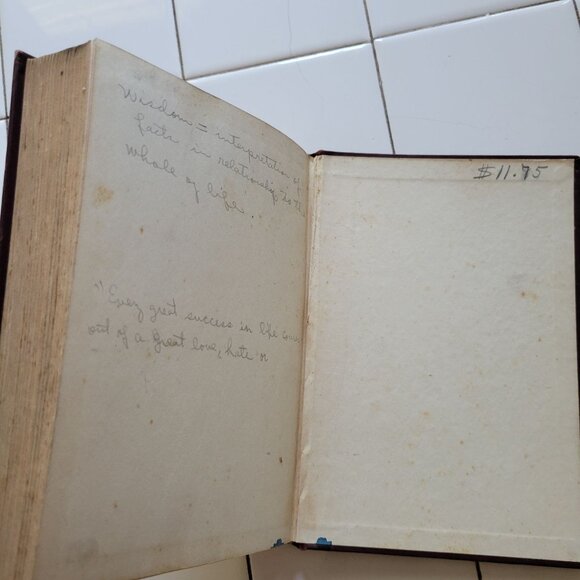 Wisdom = interpretation of
facts in relationship to the
whole of life.
"Every great success in life comes
out of a great love, hate or
$11.75